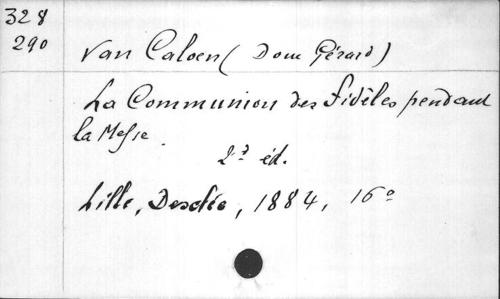 328
290
Van Caloen (Dom Gérard)
La Communion des Fidèles pendant
la Messe.
2ᵈ éd.
Lille, Desclée, 1884, 16°